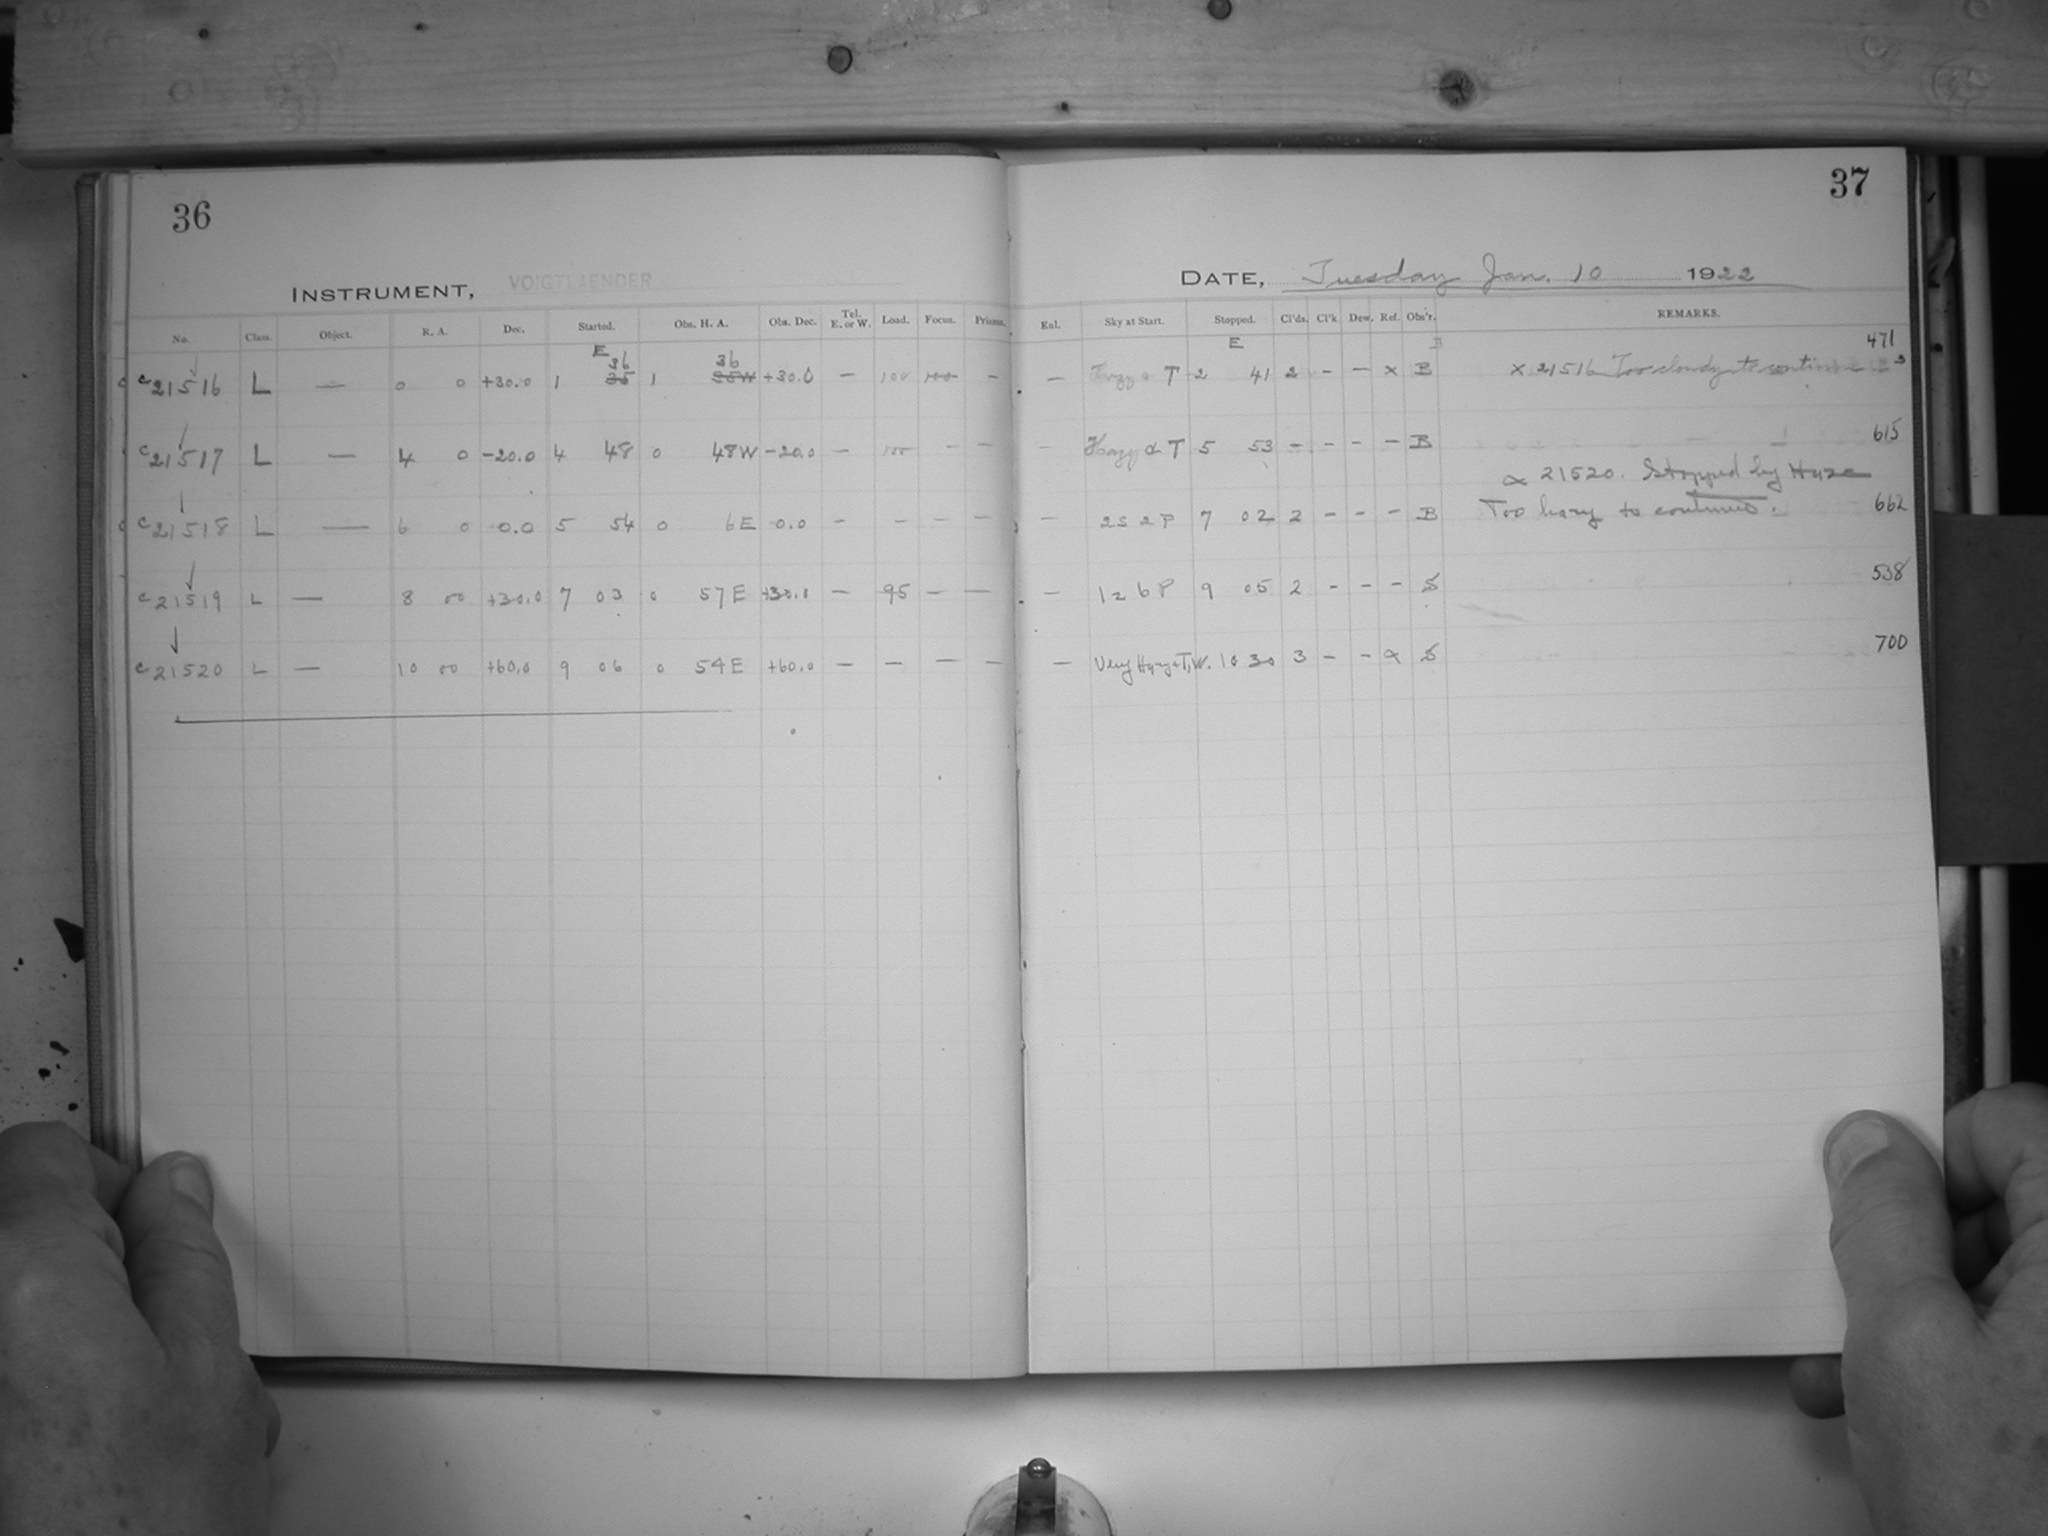 36
INSTRUMENT, VOIGTLAENDER
No. Class. Object. R. A. Dec. Started. Obs. H. A. Obs. Dec. Tel. E. or W. Load. Focus. Prisms.
E
c21516 L — 0 0 +30.0 1 36 1 36 +30.0 — 100 100 —
c21517 L — 4 0 -20.0 4 48 0 48W -20.0 — 100 - —
c21518 L — 6 0 0.0 5 54 0 6E 0.0 - - - -
c21519 L — 8 00 +30.0 7 03 0 57E +30.0 — 95 — —
c21520 L — 10 00 +60.0 9 06 0 54E +60.0 — — — —
37
DATE, Tuesday Jan. 10 1922
Enl. Sky at Start. Stopped. Cl'ds. Cl'k Dew. Ref. Obs'r. REMARKS.
E
— T 2 41 2 - - x B x 21516 Too cloudy to continue 471
— Hazy & T 5 53 - - - - B 615
α 21520. Stopped by Haze
— 2S 2P 7 02 2 - - - B Too hazy to continue. 662
— 12 6P 9 05 2 - - - S 538
— Very Hazy T, W. 10 30 3 - - α S 700